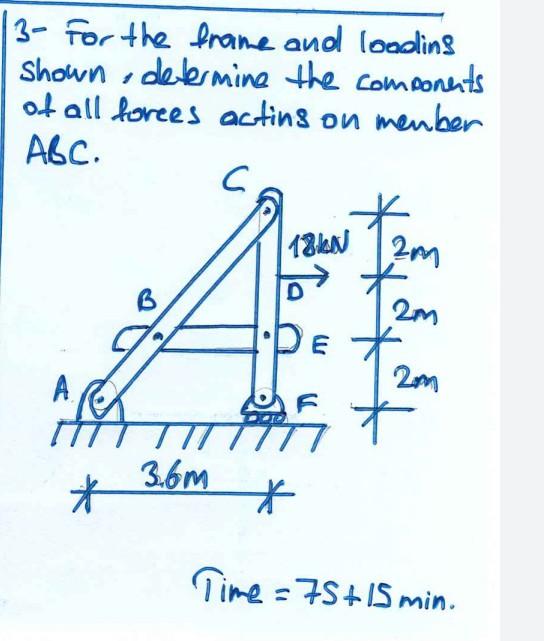 3- For the frame and loading
shown, determine the components
of all forces acting on member
ABC.
C
18kN
2m
D
B
2m
E
A
F
2m
3.6m
Time = 75+15 min.